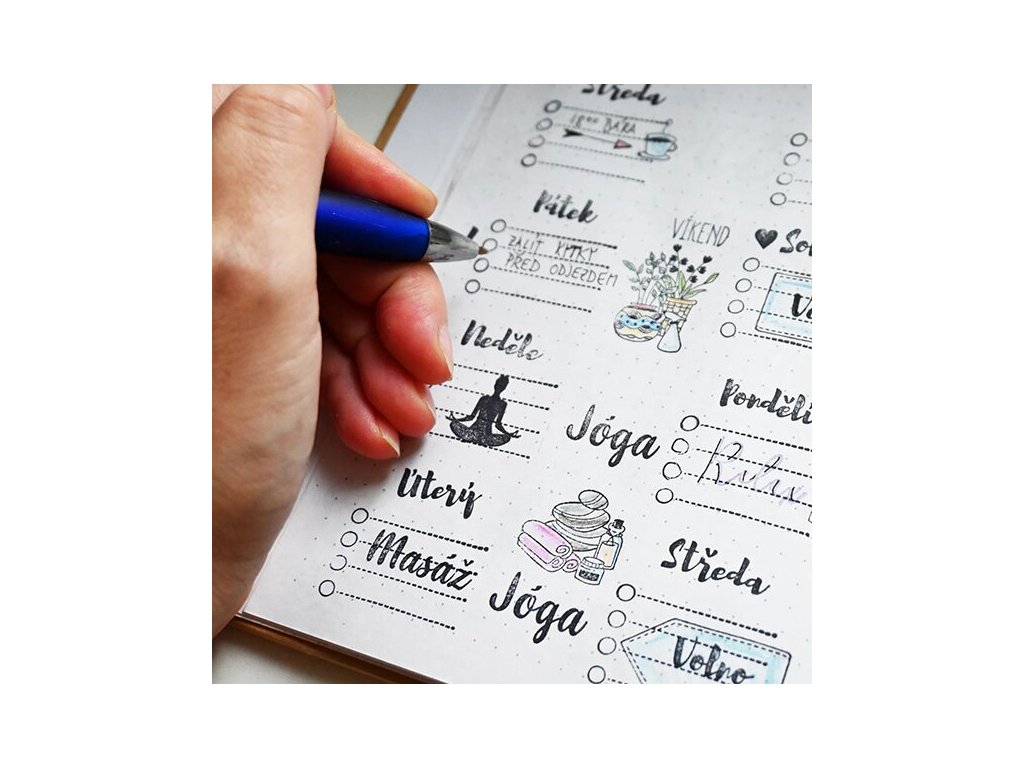 Středa
18⁰⁰ BÁRA
Pátek
ZALÍT KYTKY
PŘED ODJEZDEM
VÍKEND
Neděle
Jóga
Pondělí
Relax
Úterý
Masáž
Jóga
Středa
Volno